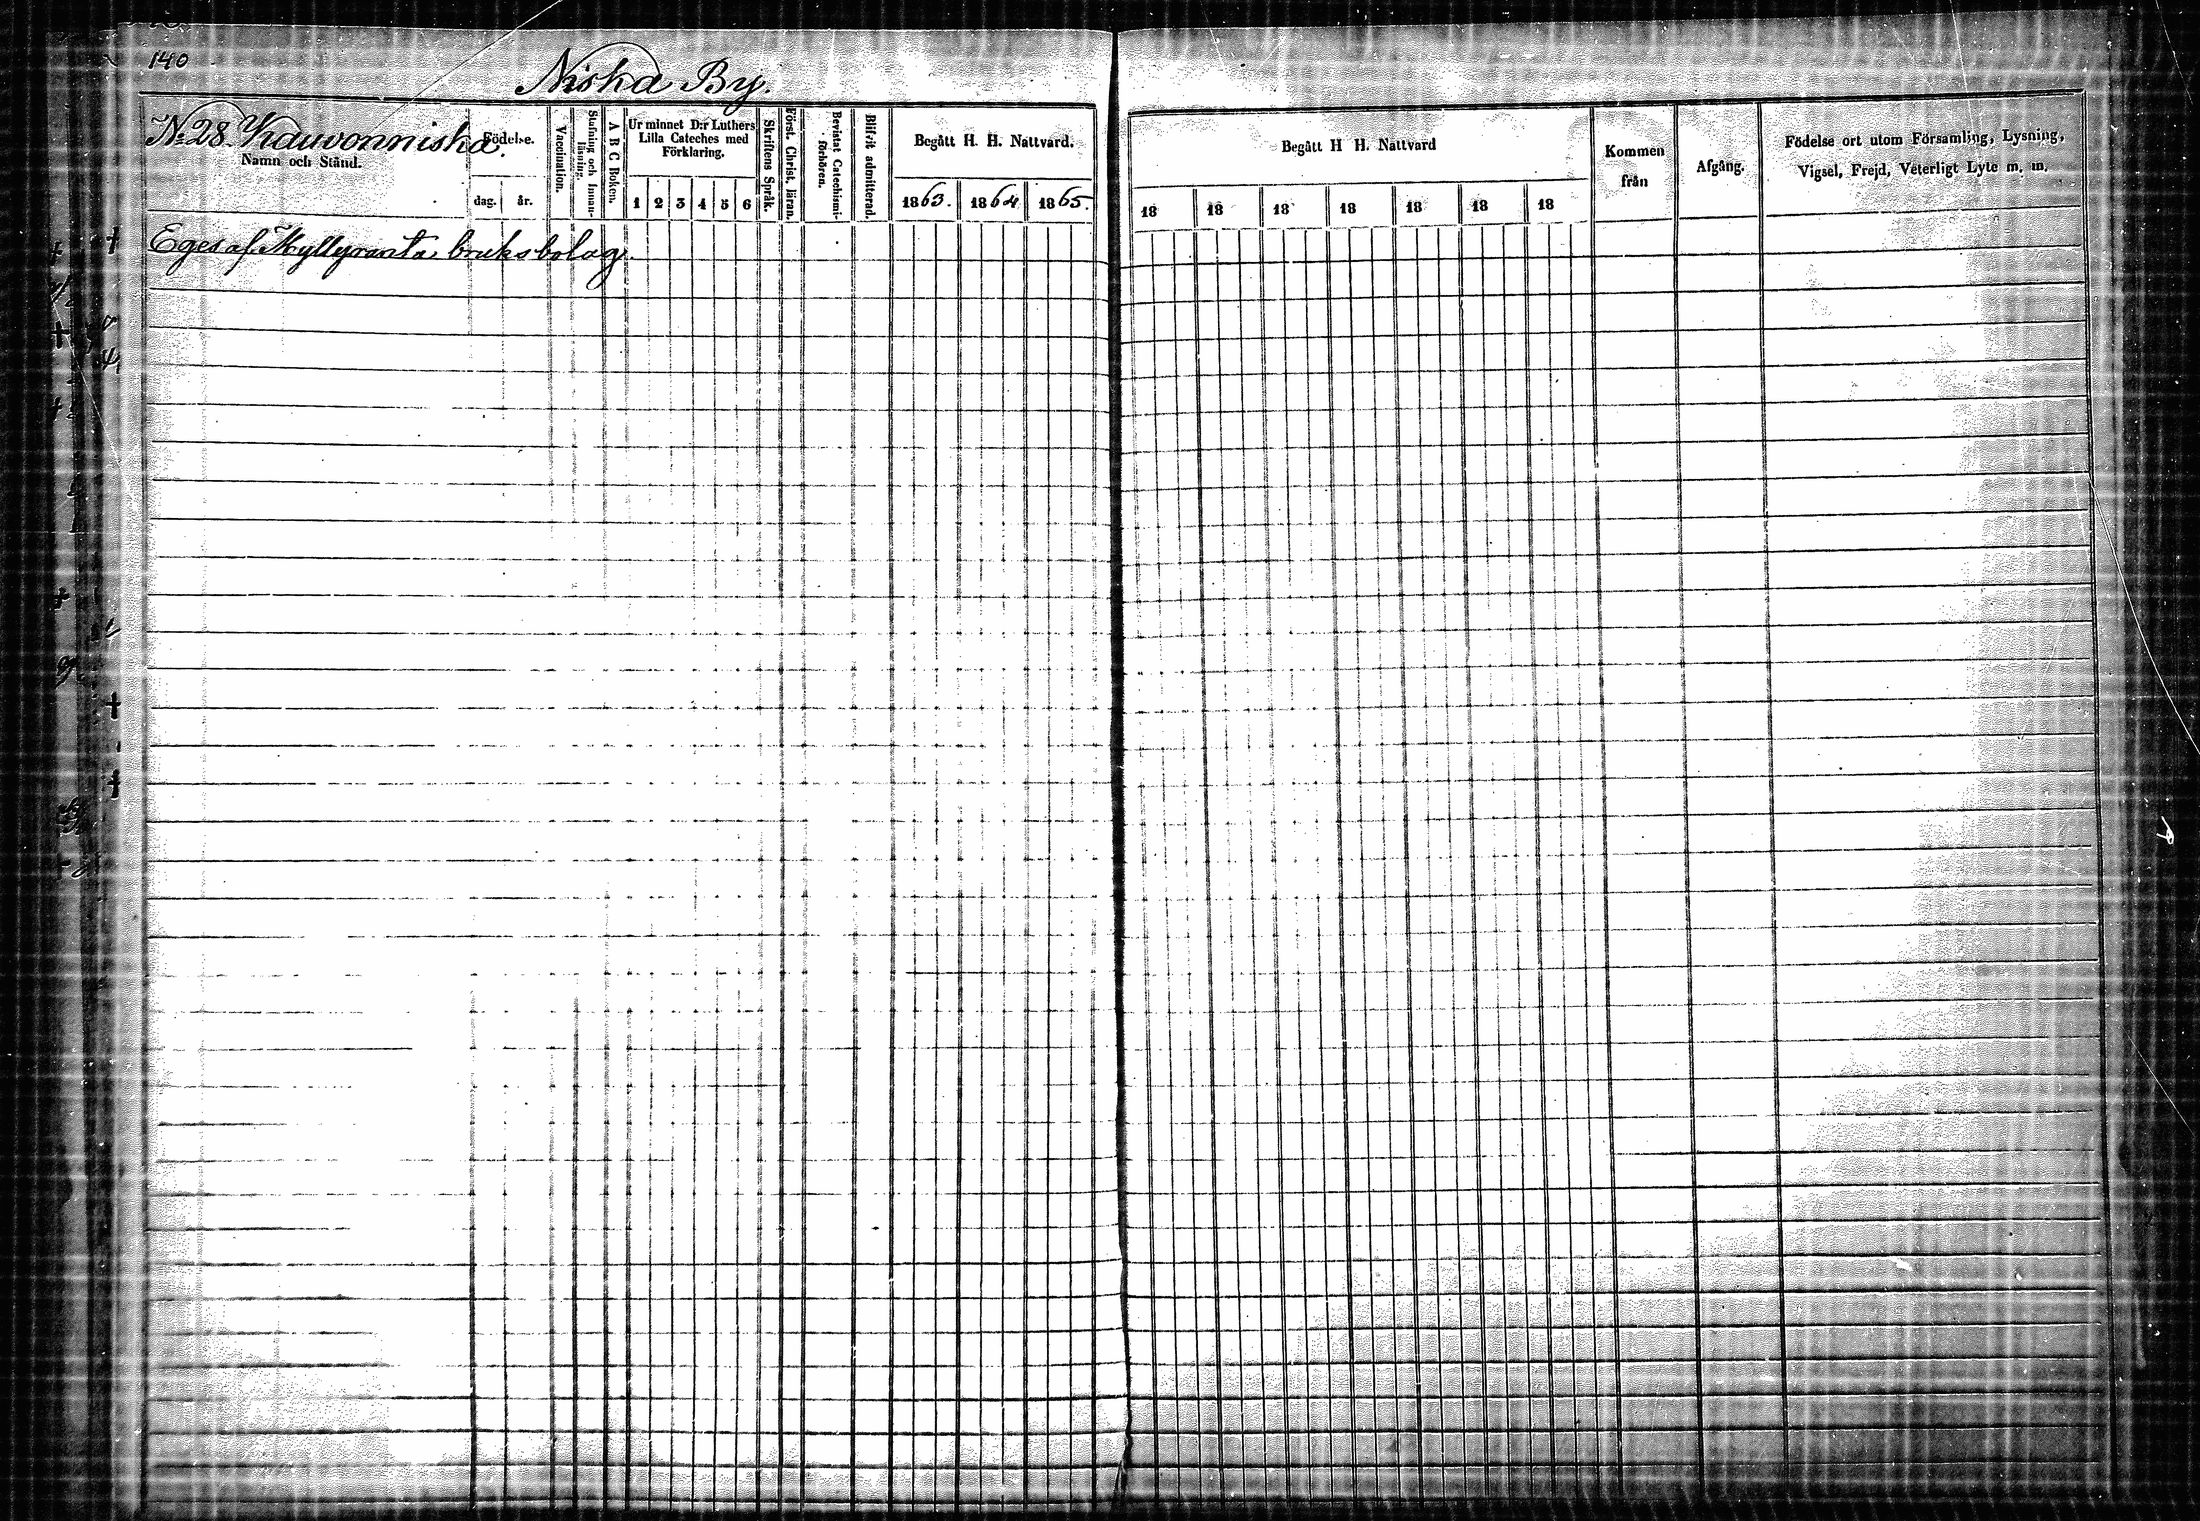 140
Niska By.
No 28. Kauvonniska.
Namn och Stånd.
Födelse.
dag. år.
Vaccination.
Stafning och Innan-
läsning.
A B C Boken.
Ur minnet D:r Luthers
Lilla Cateches med
Förklaring.
1 2 3 4 5 6
Skriftens Språk.
Först. Christ. läran.
Bevistat Catechismi-
förhören.
Blifvit admitterad.
Begått H. H. Nattvard.
1863. 1864 1865.
Begått H H. Nattvard
18 18 18 18 18 18 18
Kommen
från
Afgång.
Födelse ort utom Församling, Lysning,
Vigsel, Frejd, Veterligt Lyte m. m.
Eges af Myllyranta bruksbolag.